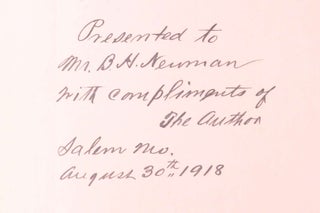 Presented to
Mr. B. H. Newman
with compliments of
The Author
Salem Mo.
August 30th 1918